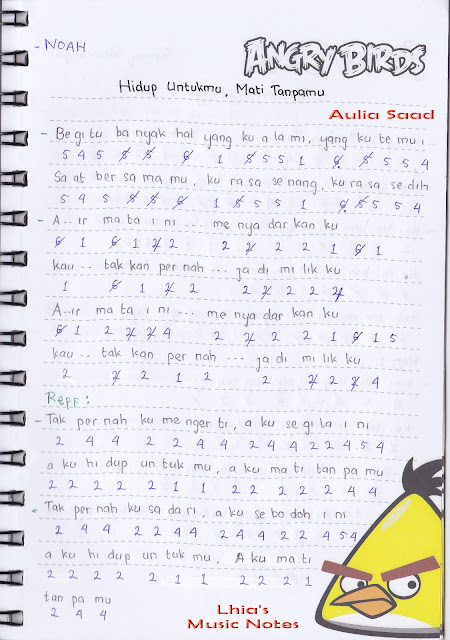 - NOAH
ANGRY BIRDS
Hidup Untukmu, Mati Tanpamu
Aulia Saad
- Be gi tu ba nyak hal yang ku a la mi, yang ku te mu i
5 4 5 5̸ 5̸ 6̸ 1 5̸ 5 5 1 6̸ 6̸ 5 5 4
Sa at ber sa ma mu, ku ra sa se nang, ku ra sa se dih
5 4 5 6̸ 5̸ 6̸ 1 5̸ 5 5 1 6̸ 6̸ 5 5 4
- A..ir ma ta i ni ... me nya dar kan ku
6̸ 1 6̸ 1 2̸ 2 2 2̸ 2 2 1 6̸ 1
kau .. tak kan per nah ... ja di mi lik ku
1 6̸ 1 2̸ 2 2 2̸ 2 2 2̸
A..ir ma ta i ni ... me nya dar kan ku
6̸ 1 2 2̸ 2̸ 4 2 2̸ 2 2 1 6̸ 1 5
kau .. tak kan per nah ... ja di mi lik ku
2 2̸ 2 1 2 2 2̸ 2 2̸ 4
Reff :
- Tak per nah ku me nger ti, a ku se gi la i ni
2 4 4 2 2 4 4 2 4 4 2 2 4 . 5 4
a ku hi dup un tuk mu, a ku ma ti tan pa mu
2 2 2 2 2 1 1 2 2 2 2 2 4 4
- Tak per nah ku sa da ri, a ku se bo doh i ni
2 4 4 2 2 4 4 2 4 4 2 2 4 5 4
a ku hi dup un tuk mu, A ku ma ti
2 2 2 2 2 1 1 2 2 2 1
tan pa mu
2 4 4
Lhia's
Music Notes